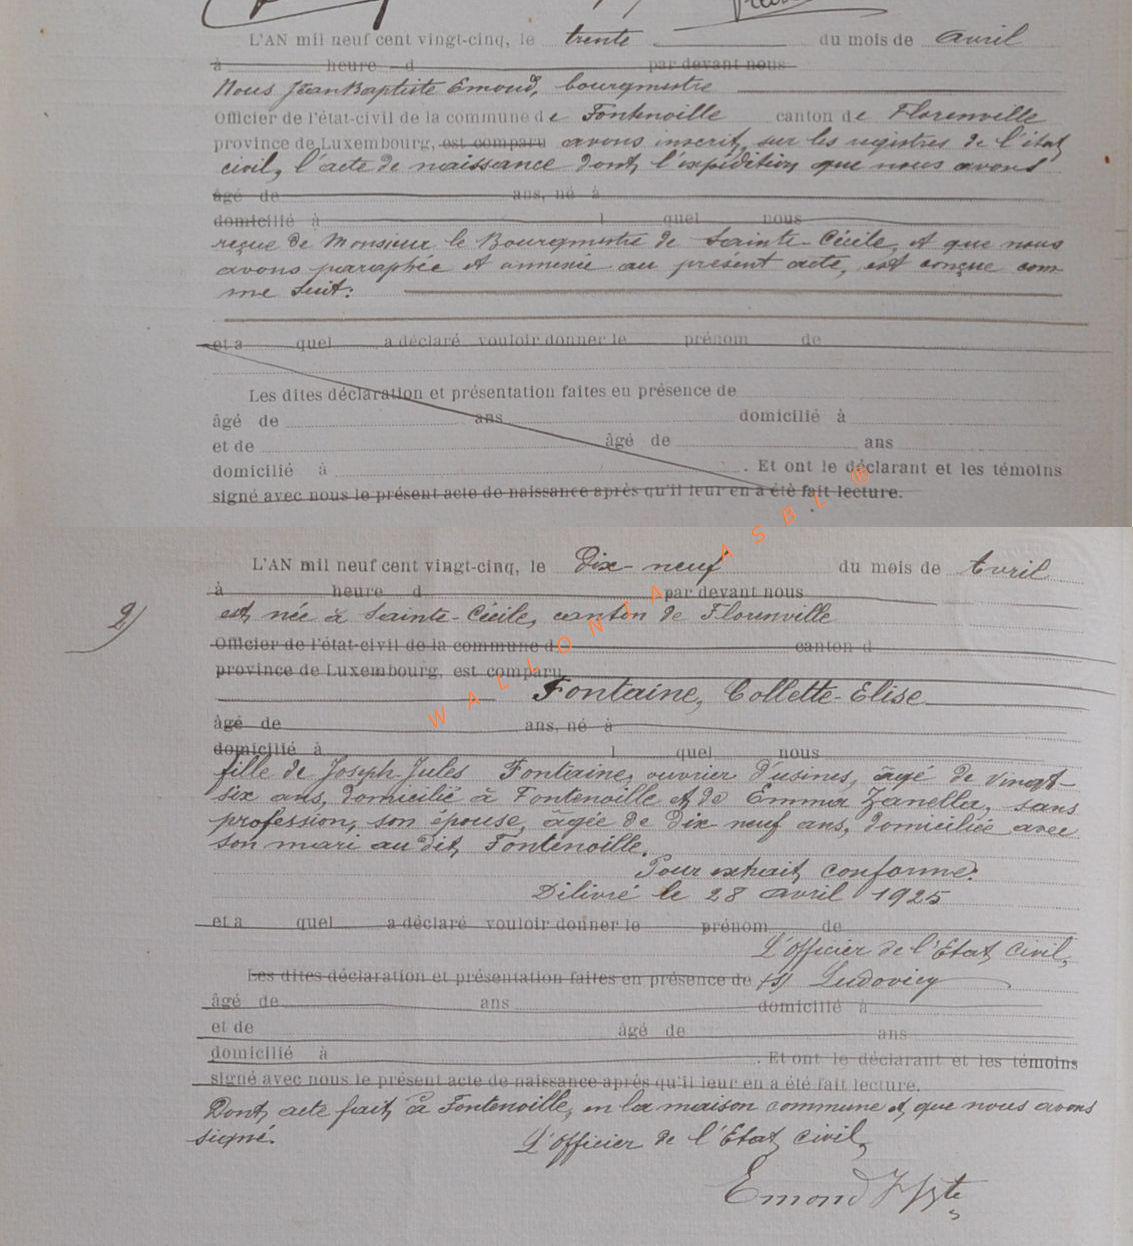 L'AN mil neuf cent vingt-cinq, le trente du mois de avril
à heure d par devant nous
Nous Jean Baptiste Emond, bourgmestre
Officier de l'état-civil de la commune de Fontenoille canton de Florenville
province de Luxembourg, est comparu avons inscrit, sur les registres de l'état
civil, l'acte de naissance dont l'expédition que nous avons
âgé de ans, né à
domicilié à l quel nous
reçue de Monsieur le Bourgmestre de Sainte-Cécile, et que nous
avons paraphée et annexée au présent acte, est conçue com
me suit:
et a quel a déclaré vouloir donner le prénom de
Les dites déclaration et présentation faites en présence de
âgé de ans domicilié à
et de âgé de ans
domicilié à . Et ont le déclarant et les témoins
signé avec nous le présent acte de naissance après qu'il leur en a été fait lecture.
WALLONIA ASBL ®
L'AN mil neuf cent vingt-cinq, le Dix-neuf du mois de Avril
à heure d par devant nous
2) est née à Sainte-Cécile, canton de Florenville
Officier de l'état-civil de la commune d canton d
province de Luxembourg, est comparu
Fontaine, Collette-Elise
âgé de ans, né à
domicilié à l quel nous
fille de Joseph-Jules Fontaine, ouvrier d'usines, âgé de vingt-
six ans, domicilié à Fontenoille et de Emma Zanella, sans
profession, son épouse, âgée de dix neuf ans, domiciliée avec
son mari au dit Fontenoille.
Pour extrait conforme:
Délivré le 28 avril 1925
et a quel a déclaré vouloir donner le prénom de
L'Officier de l'Etat Civil,
Les dites déclaration et présentation faites en présence de (s) Ludovicy
âgé de ans domicilié à
et de âgé de ans
domicilié à . Et ont le déclarant et les témoins
signé avec nous le présent acte de naissance après qu'il leur en a été fait lecture.
Dont acte fait à Fontenoille, en la maison commune et que nous avons
signé.
L'Officier de l'Etat Civil,
Emond